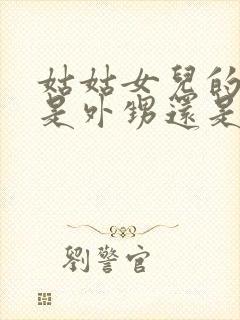 姑姑女兒的
是外甥還是
劉警官